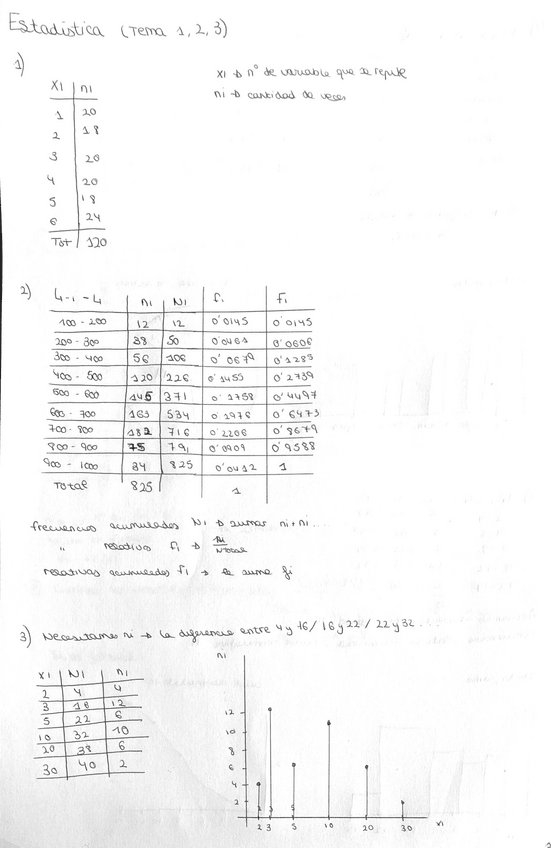 Estadística (Tema 1,2,3)
1)
xi → nº de variable que se repite
ni → cantidad de veces
xi ni
1 20
2 18
3 20
4 20
5 18
6 24
Tot 120
2)
Li-1 - Li ni Ni fi Fi
100 - 200 12 12 0'0145 0'0145
200 - 300 38 50 0'0461 0'0606
300 - 400 56 106 0'0679 0'1285
400 - 500 120 226 0'1455 0'2739
500 - 600 145 371 0'1758 0'4497
600 - 700 163 534 0'1976 0'6473
700 - 800 182 716 0'2206 0'8679
800 - 900 75 791 0'0909 0'9588
900 - 1000 34 825 0'0412 1
Total 825 1
frecuencias acumuladas Ni → sumar ni + ni ...
" relativa fi → ni/Ntotal
relativas acumuladas Fi → la suma fi
3) Necesitamos ni → la diferencia entre 4 y 16 / 16 y 22 / 22 y 32.
xi Ni ni
2 4 4
3 16 12
5 22 6
10 32 10
20 38 6
30 40 2
ni
12
10
8
6
4
2
2 3 5
2 3 5 10 20 30 xi